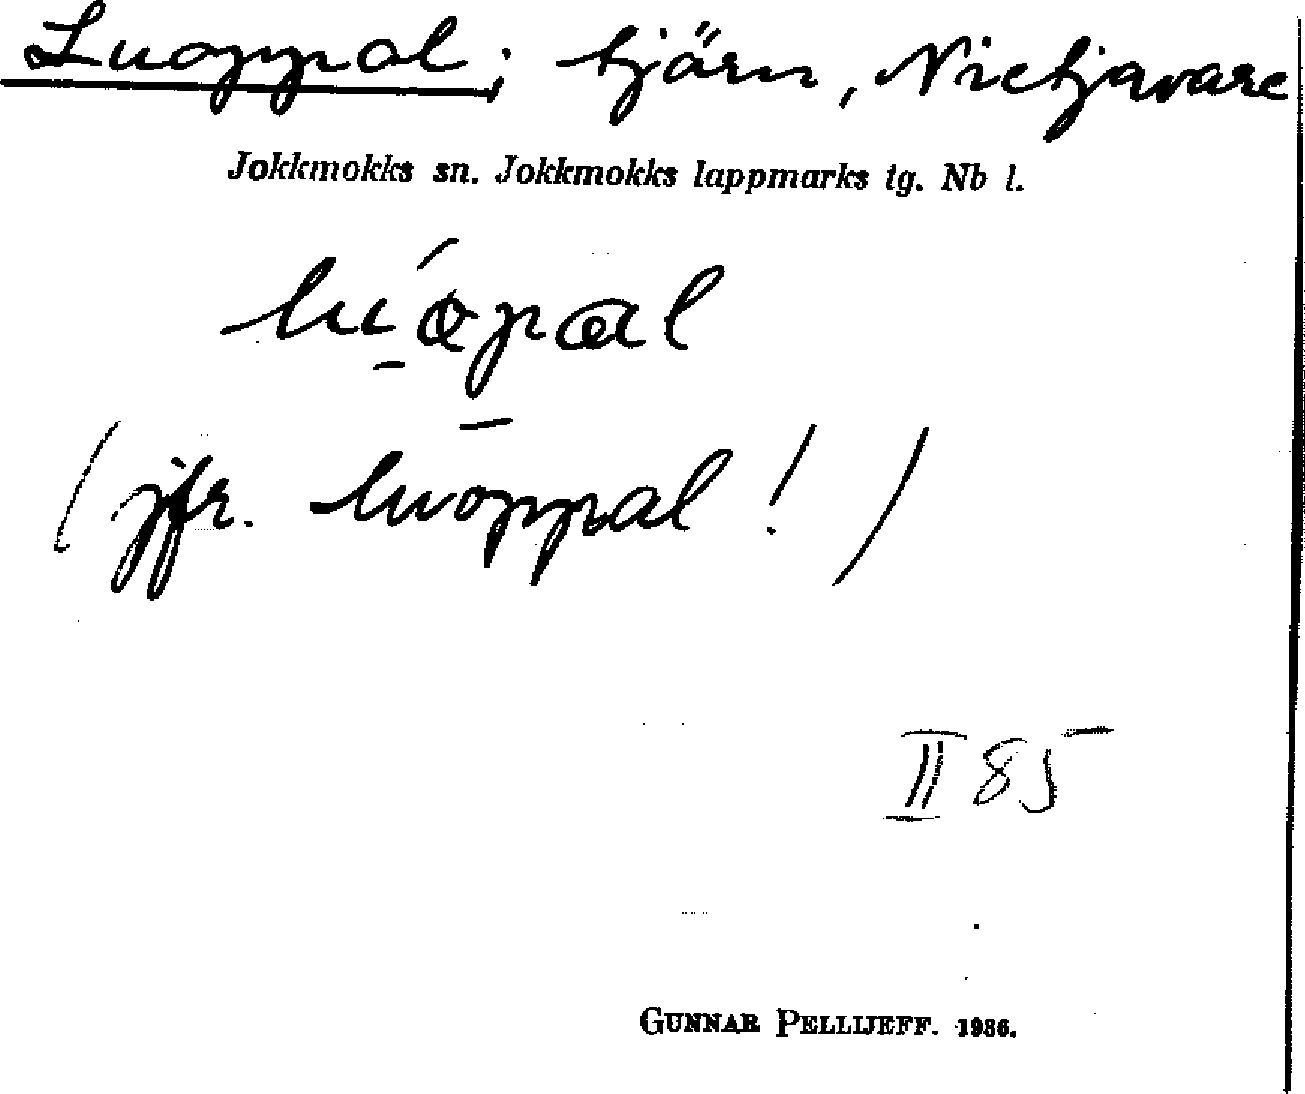 Luoppal; tjärn, Nietjavare
Jokkmokks sn. Jokkmokks lappmarks tg. Nb l.
(jfr. luoppal!)
II 85
GUNNAR PELLIJEFF. 1986.